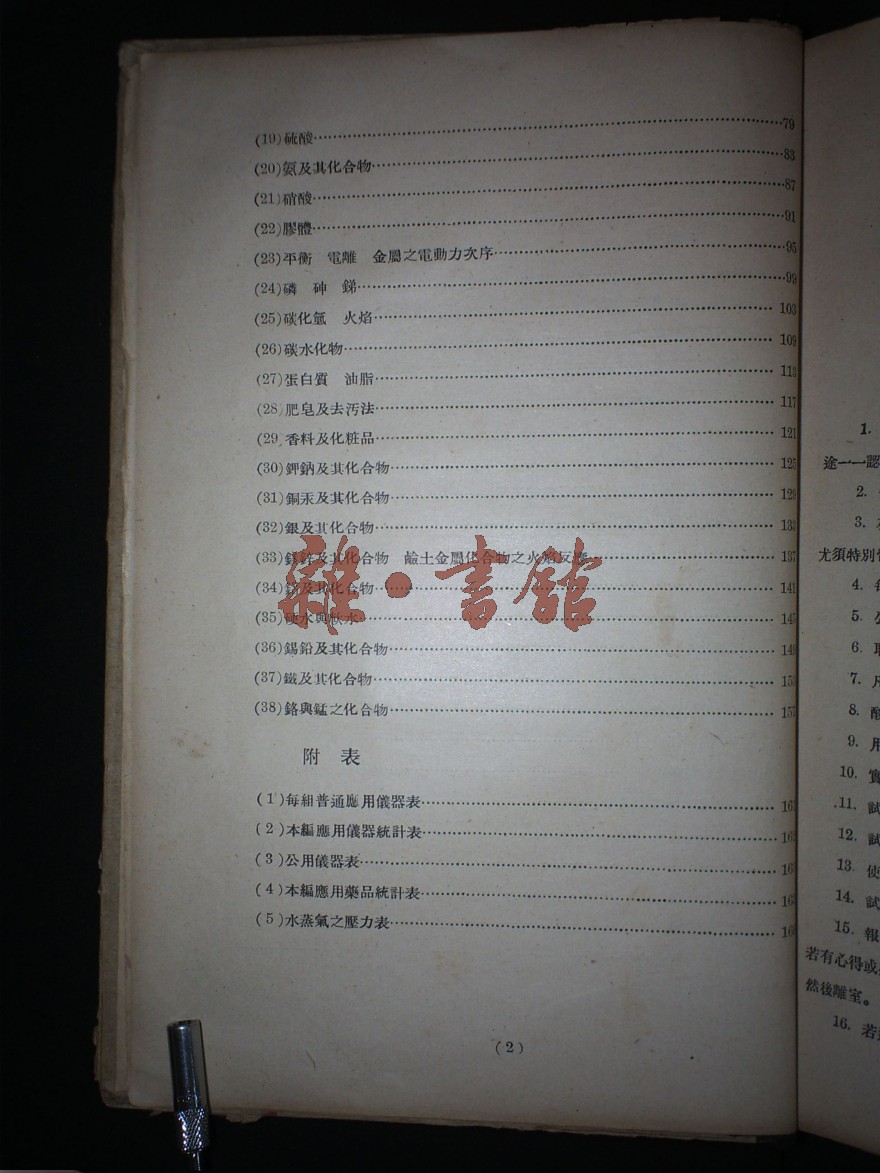 (19)硫酸………79
(20)氨及其化合物………83
(21)硝酸………87
(22)膠體………91
(23)平衡 電離 金屬之電動力次序………95
(24)磷 砷 銻………99
(25)碳化氫 火焰………103
(26)碳水化物………109
(27)蛋白質 油脂………113
(28)肥皂及去汚法………117
(29)香料及化粧品………121
(30)鉀鈉及其化合物………125
(31)銅汞及其化合物………129
(32)銀及其化合物………133
(33)鎂鋅及其化合物 鹼土金屬化合物之火焰反應………137
(34)及其化合物………141
(35)硬水與軟水………147
(36)錫鉛及其化合物………149
(37)鐵及其化合物………15
(38)鉻與錳之化合物………157
附表
(1)每組普通應用儀器表………16
(2)本編應用儀器統計表………16
(3)公用儀器表………16
(4)本編應用藥品統計表………16
(5)水蒸氣之壓力表………16
(2)
雜·書館
1.
途一一認
2.
3.
尤須特別
4.
5.
6.
7.
8. 酸
9. 用
10. 實
11. 試
12. 試
13. 使
14. 試
15. 報
若有心得或
然後離室。
16. 若